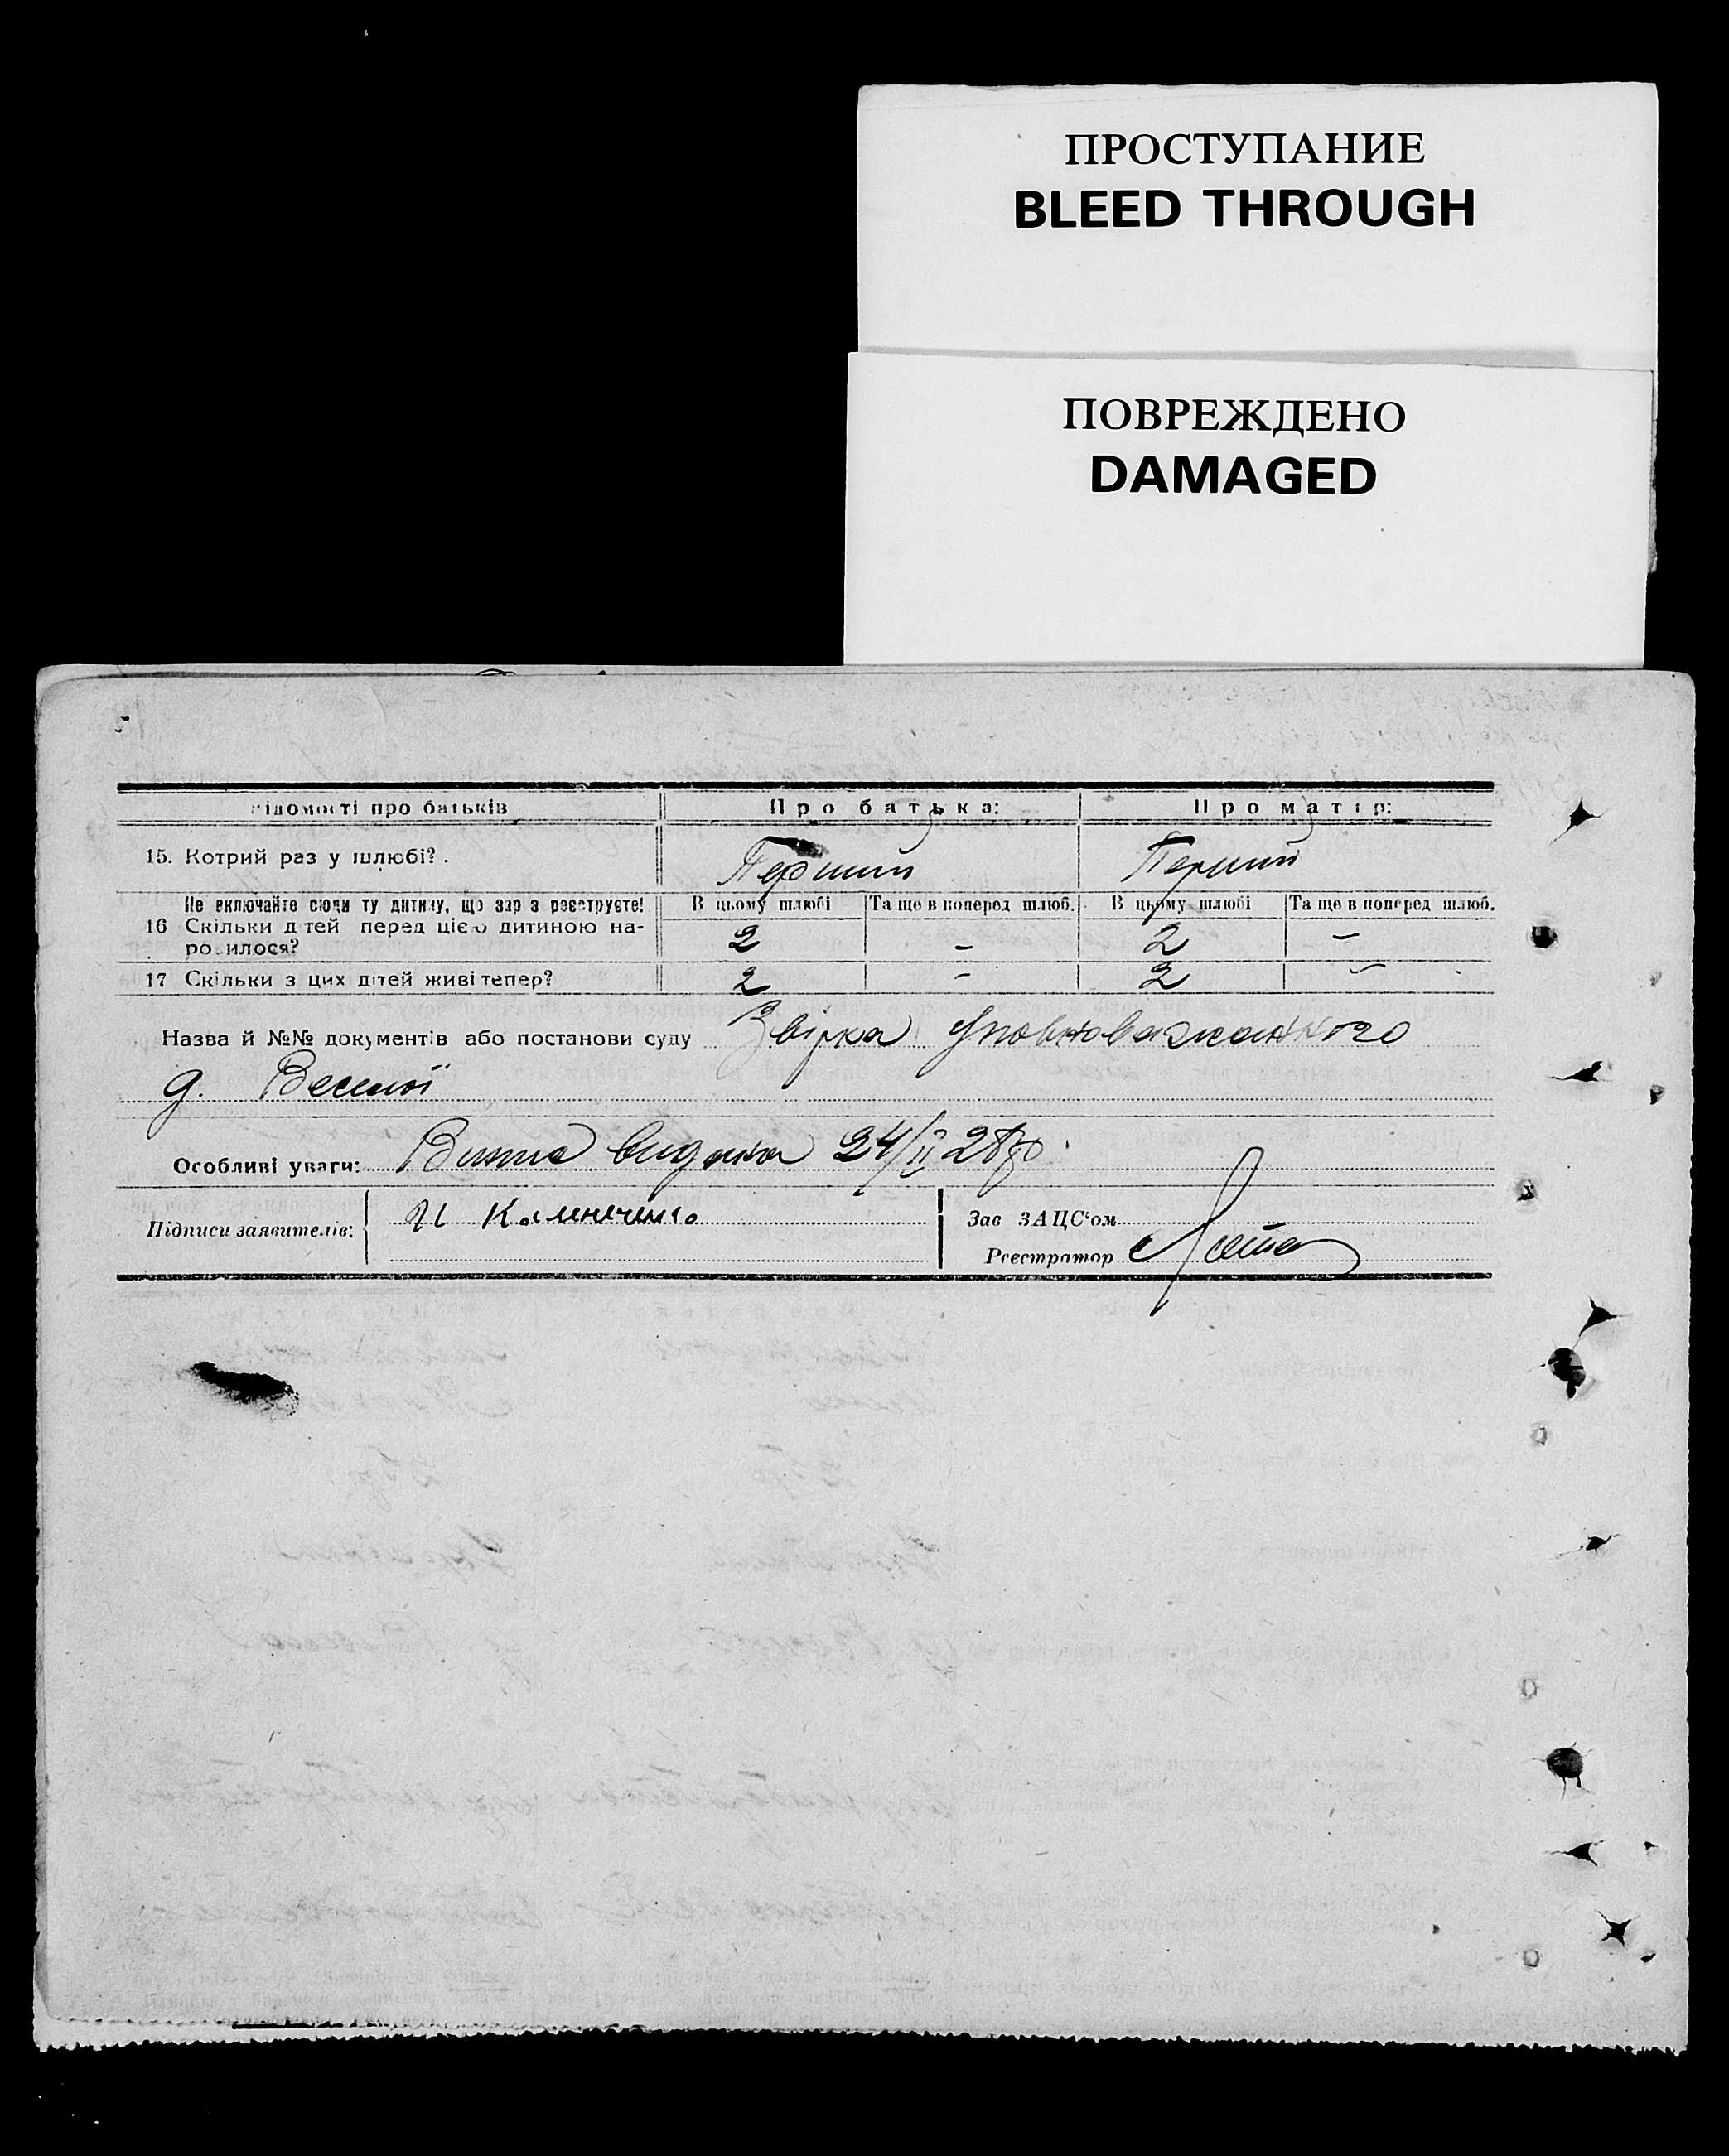 ПРОСТУПАНИЕ
BLEED THROUGH
ПОВРЕЖДЕНО
DAMAGED
відомості про батьків Про батька: Про матір:
15. Котрий раз у шлюбі? Перший Перший
Не включайте сюди ту дитину, що зараз реєструєте! В цьому шлюбі Та ще в поперед шлюб. В цьому шлюбі Та ще в поперед шлюб.
16 Скільки дітей перед цією дитиною на-
родилося? 2 – 2 –
17 Скільки з цих дітей живі тепер? 2 – 2 –
Назва й №№ документів або постанови суду Звірка Уповноваженного
д. Веселої
Особливі уваги: видана 24/II 28р
Підписи заявителів: И Зав ЗАЦС'ом
Реєстратор